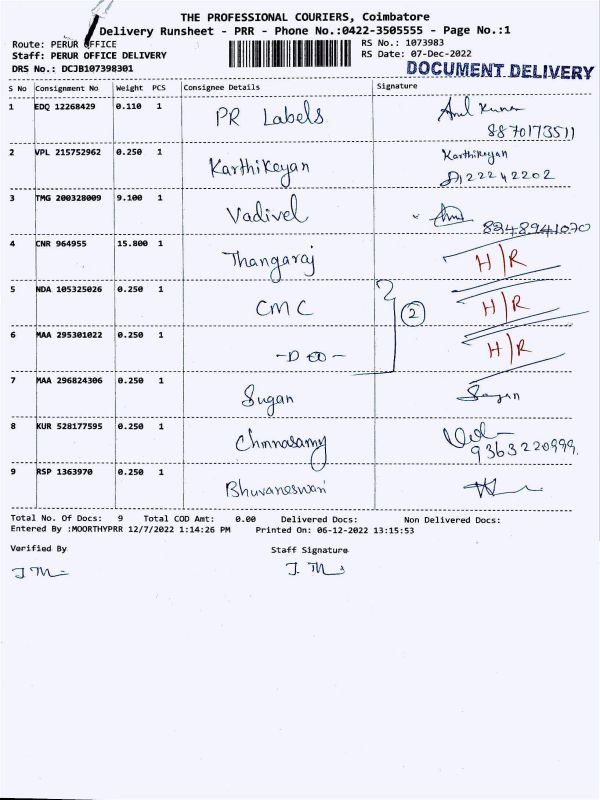 THE PROFESSIONAL COURIERS, Coimbatore
Delivery Runsheet - PRR - Phone No.:0422-3505555 - Page No.:1
Route: PERUR OFFICE
RS No.: 1073983
Staff: PERUR OFFICE DELIVERY
RS Date: 07-Dec-2022
DRS No.: DCJB107398301
DOCUMENT DELIVERY
S No Consignment No Weight PCS Consignee Details Signature
1 EDQ 12268429 0.110 1 PR Labels Arul Kumar
8870173511
2 VPL 215752962 0.250 1 Karthikeyan Karthikeyan
8122242202
3 TMG 200328009 9.100 1 Vadivel
8248941070
4 CNR 964955 15.800 1 Thangaraj H/R
5 NDA 105325026 0.250 1 CMC H/R
2
6 MAA 295301022 0.250 1 -DO- H/R
7 MAA 296824306 0.250 1 Sugan Sugan
8 KUR 528177595 0.250 1 Chinnasamy
9363220999.
9 RSP 1363970 0.250 1 Bhuvaneswari
Total No. Of Docs: 9 Total COD Amt: 0.00 Delivered Docs: Non Delivered Docs:
Entered By :MOORTHYPRR 12/7/2022 1:14:26 PM Printed On: 06-12-2022 13:15:53
Verified By Staff Signature